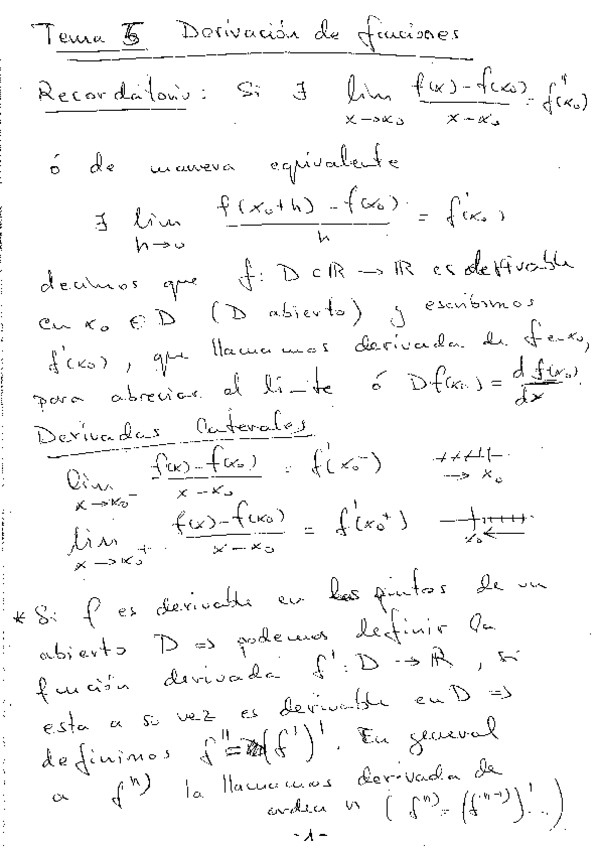 Tema 5 Derivación de funciones
Recordatorio: Si ∃ lim x→x₀ (f(x)-f(x₀))/(x-x₀) = f'(x₀)
ó de manera equivalente
∃ lim h→0 (f(x₀+h)-f(x₀))/h = f'(x₀)
decimos que f: D⊂ℝ → ℝ es derivable
en x₀ ∈ D (D abierto) y escribimos
f'(x₀), que llamamos derivada de f en x₀,
para abreviar el límite ó Df(x₀) = d f(x₀)/dx
Derivadas Laterales
lim x→x₀⁻ (f(x)-f(x₀))/(x-x₀) = f'(x₀⁻) → x₀
lim x→x₀⁺ (f(x)-f(x₀))/(x-x₀) = f'(x₀⁺) x₀ ←
* Si f es derivable en los puntos de un
abierto D ⇒ podemos definir la
función derivada f': D → ℝ, si
esta a su vez es derivable en D ⇒
definimos f''=(f')'. En general
a fⁿ⁾ la llamamos derivada de
orden n (fⁿ⁾=(fⁿ⁻¹⁾)'...)
-1-